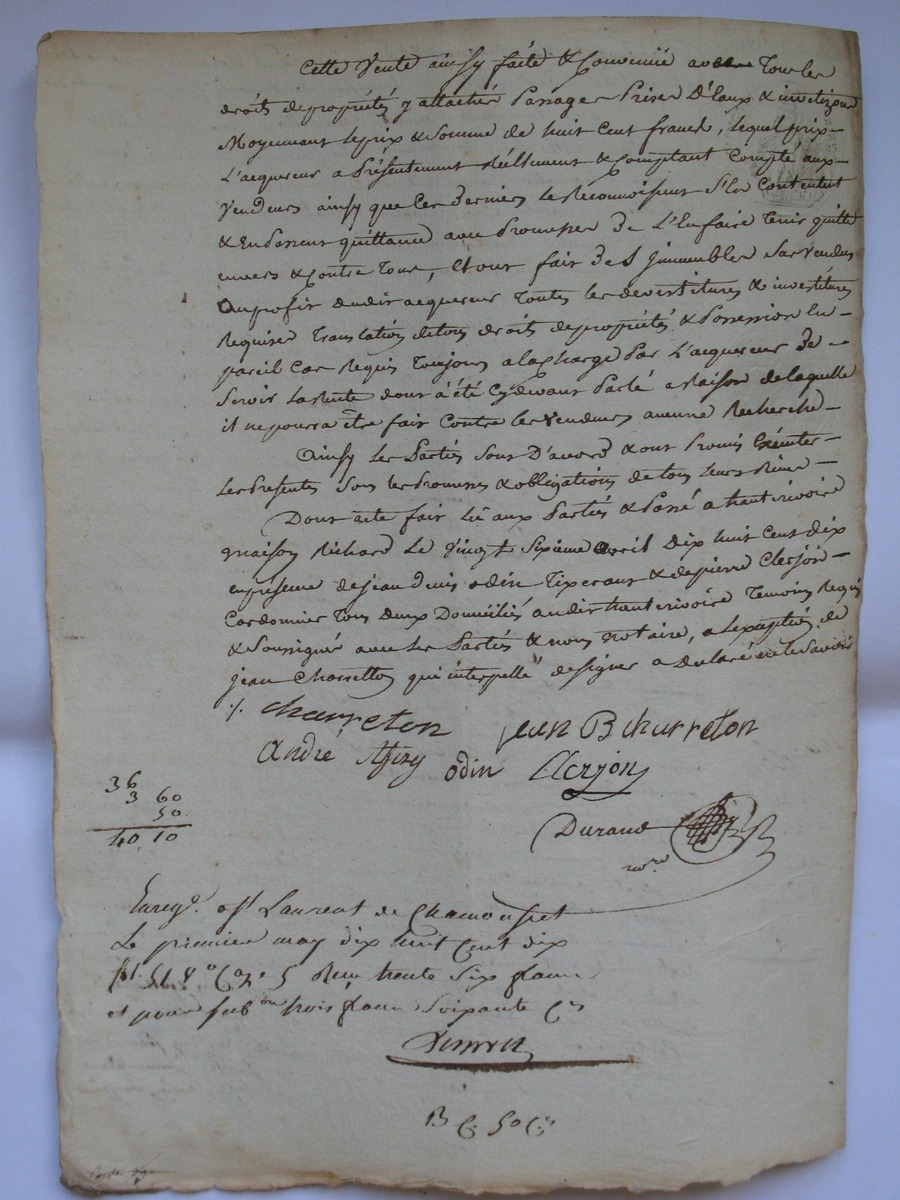 Cette Vente ainsy faite & Convenüe avec Tous les
droits de propriétés y attachés Passages Prises D'Eaux &
Moyennant le prix & Somme de huit Cent francs, lequel prix
L'acquereur a Présentement Réellement & Comptant Compté aux
Vendeurs ainsy que Ces Derniers le Reconnoissent S'En Contentent
& En Passent quittance avec Promesses De L'En faire Tenir quitte
envers & Contre Tous, Et ont fait Des Immeubles Sus Vendus
Au profit dudit acquereur Toutes les devestitures & investitures
Requises Translation de tous droits de propriétés & Possession En
pareil Cas Requis Toujours a la Charge Par L'acquereur De
Servir La Rente dont a été Cy devant Parlé a Raison de laquelle
il ne pourra être fait Contre les Vendeurs aucune Recherche
Ainsy les Parties Sont D'accord & ont Promis Exécuter
Les Présentes Sous les Promesses & obligations de tous Leurs Biens
Dont acte fait Lû aux Parties & Passé a hauterivoire
maison Richard Le Vingt Sixieme avril Dix huit Cent Dix
en présence de jean Denis odin Tixerant & de pierre Clerjon
Cordonnier Tous Deux Domiciliés audit hauterivoire Temoins Requis
& Soussignés avec les Parties & nous notaire, a l'exeption de
jean Charretton qui interpellé de signer a Déclaré ne le Savoir
./. charreton jean B charreton
André odin Clerjon
36
3 60
50
40 10
Durand
nore
Enregé. a St Laurent de Chamousset
Le premier may dix huit Cent dix
fo. 51. Vo Ce 5 Reçu trente Six francs
et pour subon trois francs Soixante Ces
50 Ces